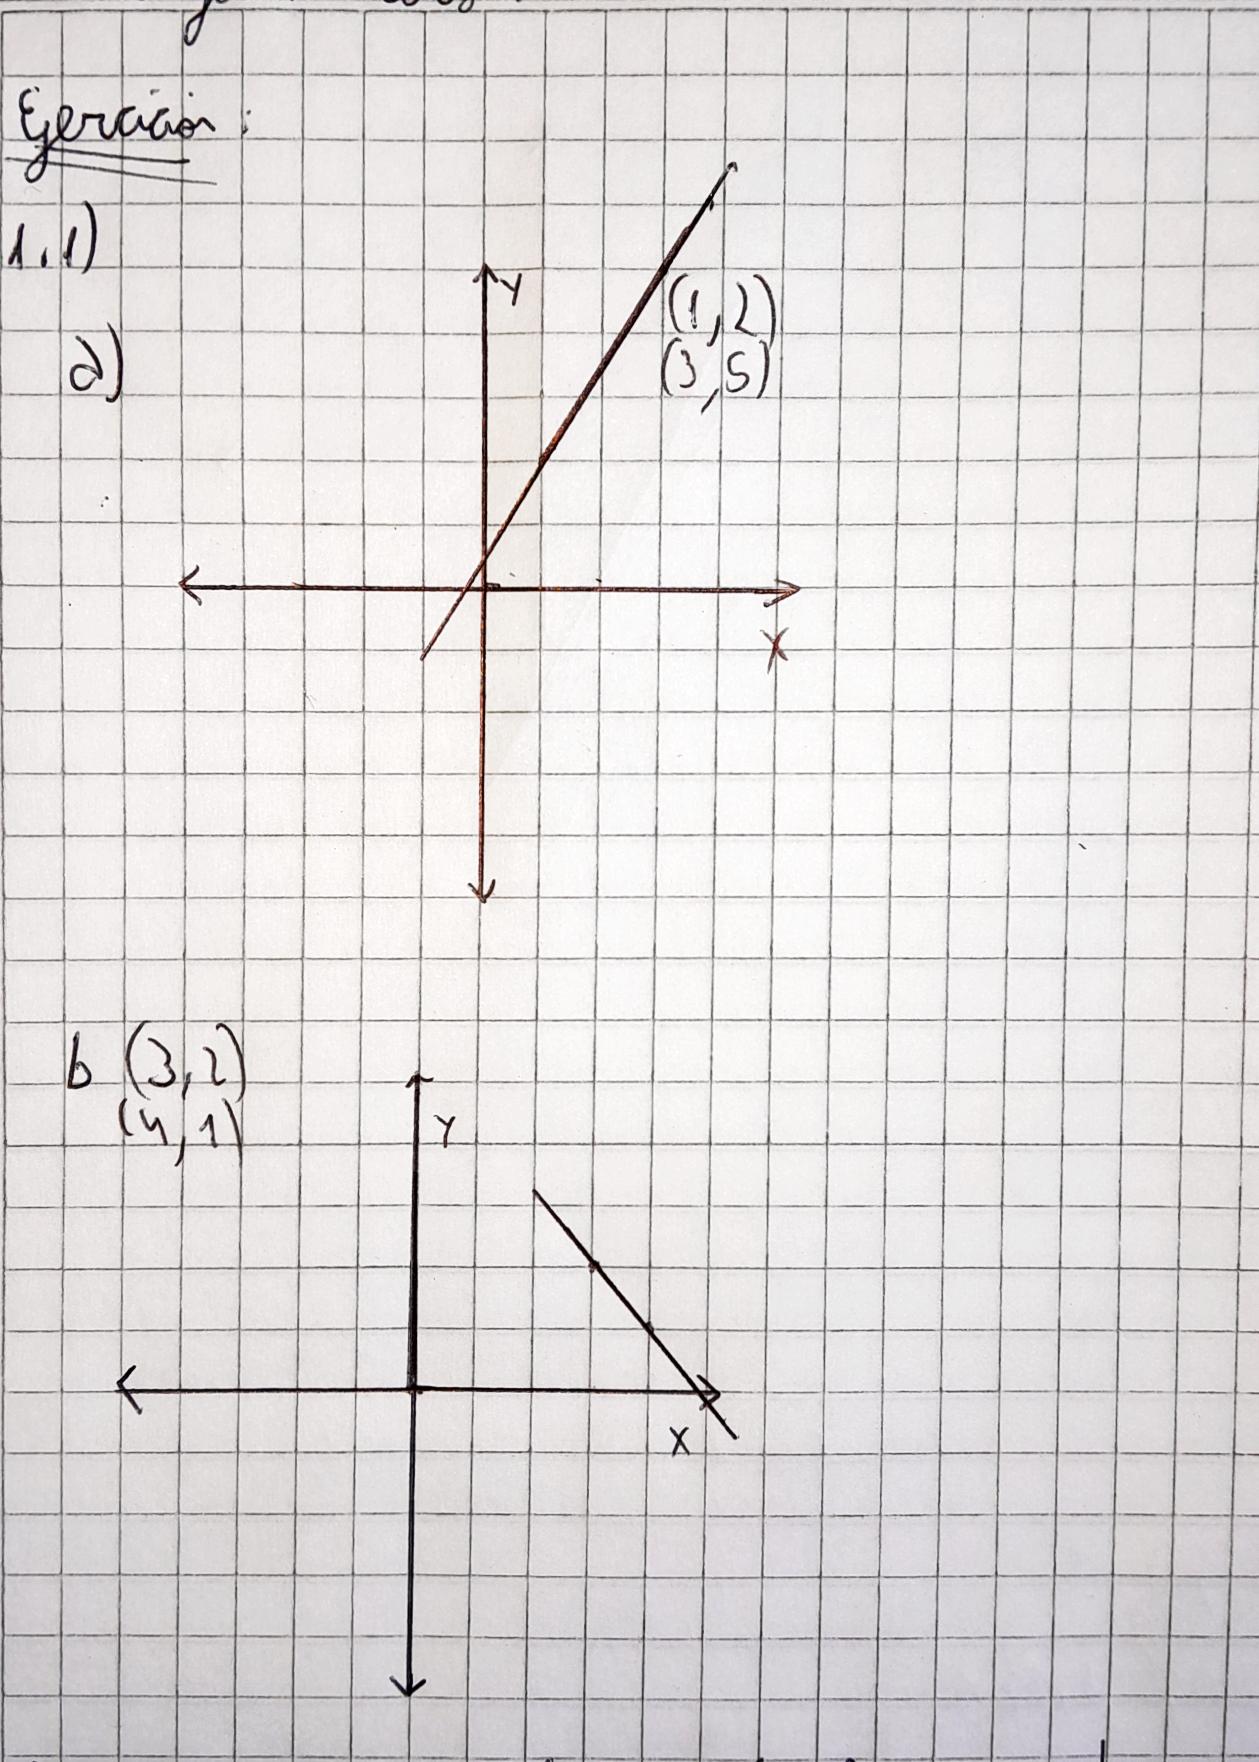 Ejercicios:
1.1)
a)
Y
(1,2)
(3,5)
X
b (3,2)
(4,1)
Y
X